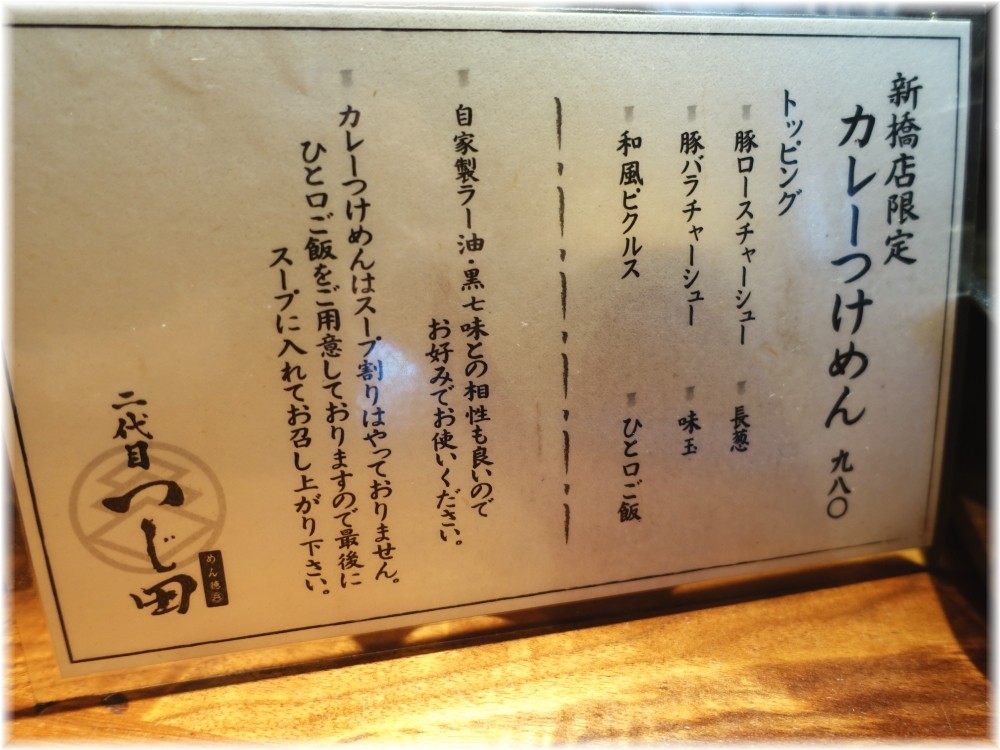 新橋店限定
カレーつけめん 九八〇
トッピング
豚ロースチャーシュー
長葱
豚バラチャーシュー
味玉
和風ピクルス
ひと口ご飯
自家製ラー油・黒七味との相性も良いので
お好みでお使いください。
カレーつけめんはスープ割りはやっておりません。
ひと口ご飯をご用意しておりますので最後に
スープに入れてお召し上がり下さい。
二代目
つじ田
めん徳